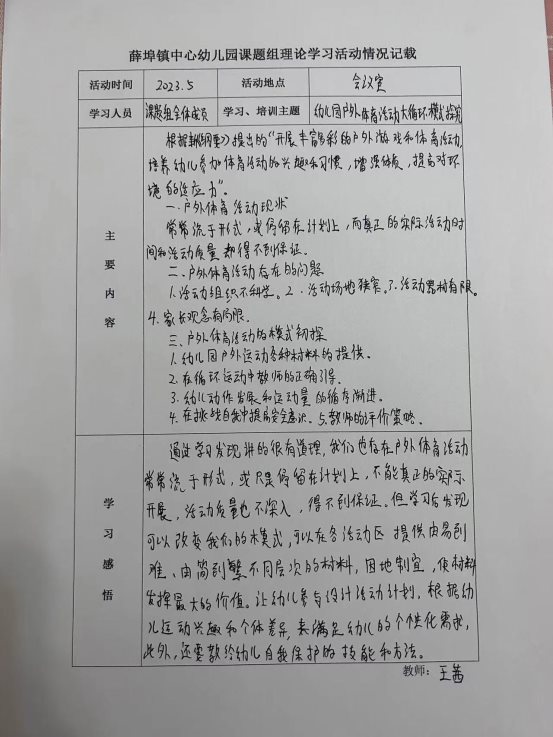 薛埠镇中心幼儿园课题组理论学习活动情况记载
活动时间 2023.5 活动地点 会议室
学习人员 课题组全体成员 学习、培训主题 幼儿园户外体育活动大循环模式探究
主要内容
根据《新纲要》提出的“开展丰富多彩的户外游戏和体育活动,
培养幼儿参加体育活动的兴趣和习惯,增强体质,提高对环
境的适应力”。
一.户外体育活动现状
常常流于形式,或停留在计划上,而真正的实际活动时
间和活动质量却得不到保证.
二.户外体育活动存在的问题
1.活动组织不科学。2.活动场地狭窄。3.活动器材有限。
4.家长观念有局限.
三.户外体育活动的模式初探
1.幼儿园户外运动各种材料的提供.
2.在循环运动中教师的正确引导.
3.幼儿动作发展和运动量的循序渐进.
4.在挑战自我中提高安全意识.5.教师的评价策略.
学习感悟
通过学习发现讲的很有道理,我们也存在户外体育活动
常常流于形式,或只是停留在计划上,不能真正的实际
开展,活动质量也不深入,得不到保证。但学习后发现
可以改变我们的模式,可以在各活动区提供由易到
难、由简到繁不同层次的材料,因地制宜,使材料
发挥最大的价值。让幼儿参与设计活动计划,根据幼
儿运动兴趣和个体差异,来满足幼儿的个性化需求,
此外,还要教给幼儿自我保护的技能和方法。
教师:王茜